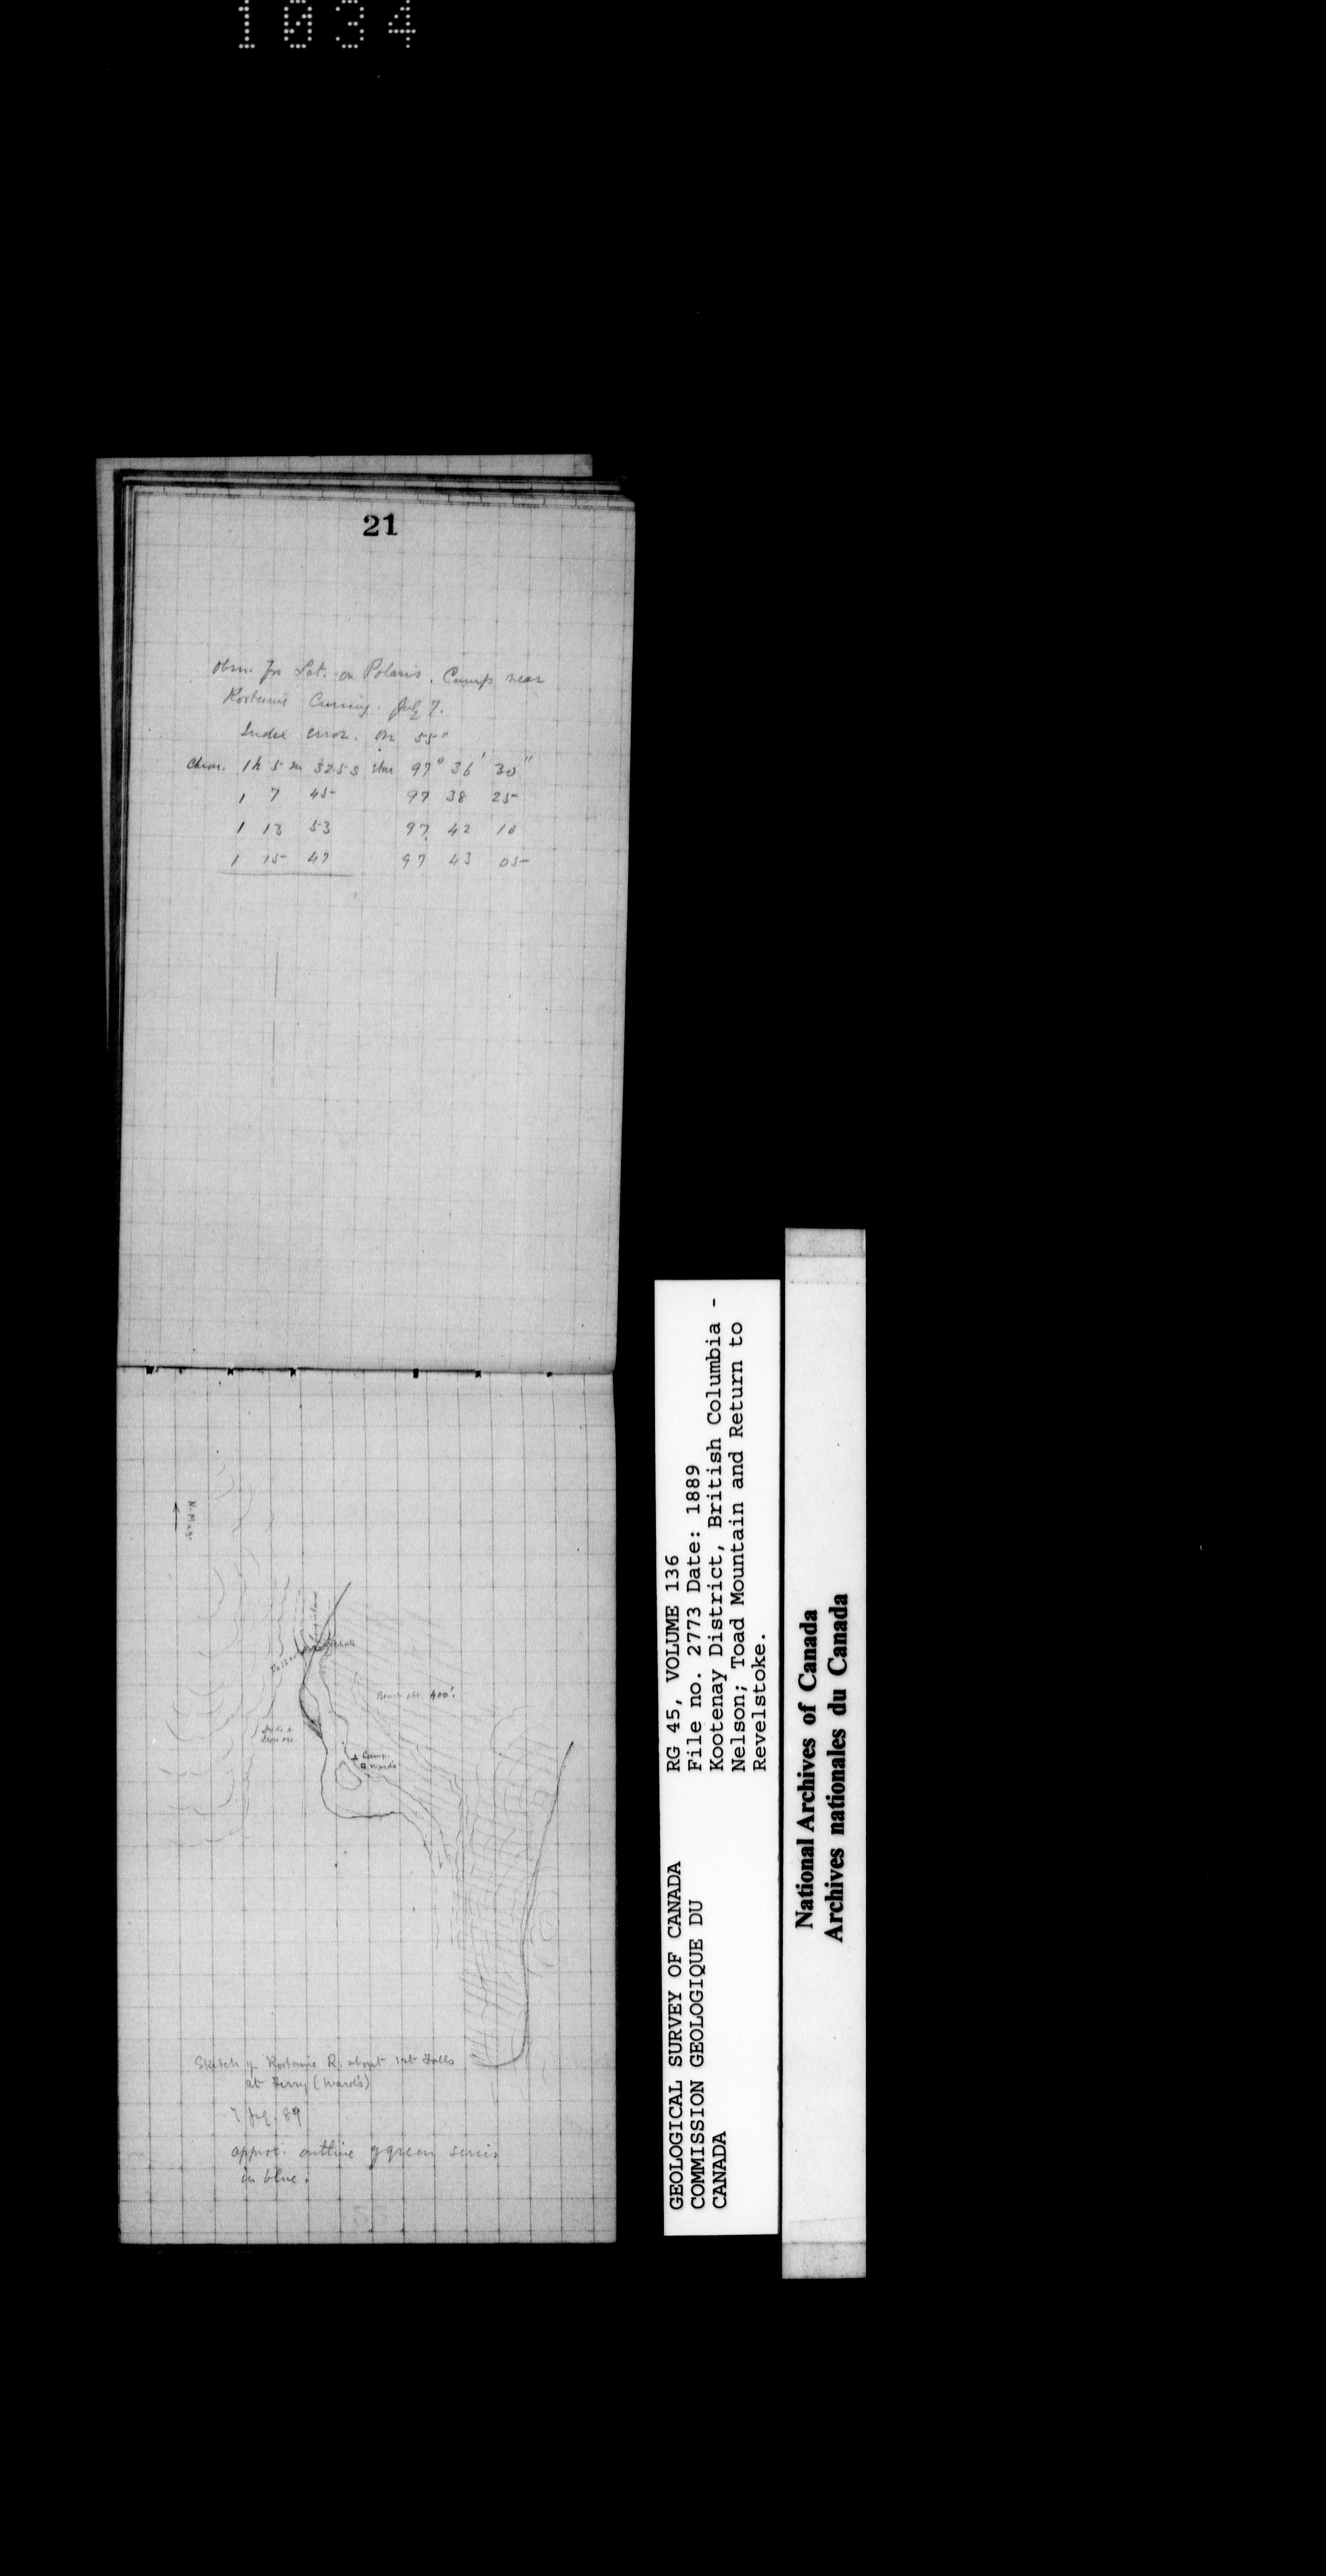 1034
21
Obsn. for Lat. on Polaris. Camp near
Kootanie Crossing. July 7.
Index error. on 55"
Chron. 1h 5m 32.5s Star 97° 36' 30"
1 7 45 97 38 25
1 13 53 97 42 10
1 15 47 97 43 05
N. Mag.
Bench abt. 400'.
Camp
Ward's
Sketch of Kootanie R. about 1st Falls
at Ferry (Ward's)
7 July. 89
approx. outline of green series
in blue.
GEOLOGICAL SURVEY OF CANADA
COMMISSION GEOLOGIQUE DU
CANADA
RG 45, VOLUME 136
File no. 2773 Date: 1889
Kootenay District, British Columbia -
Nelson; Toad Mountain and Return to
Revelstoke.
National Archives of Canada
Archives nationales du Canada